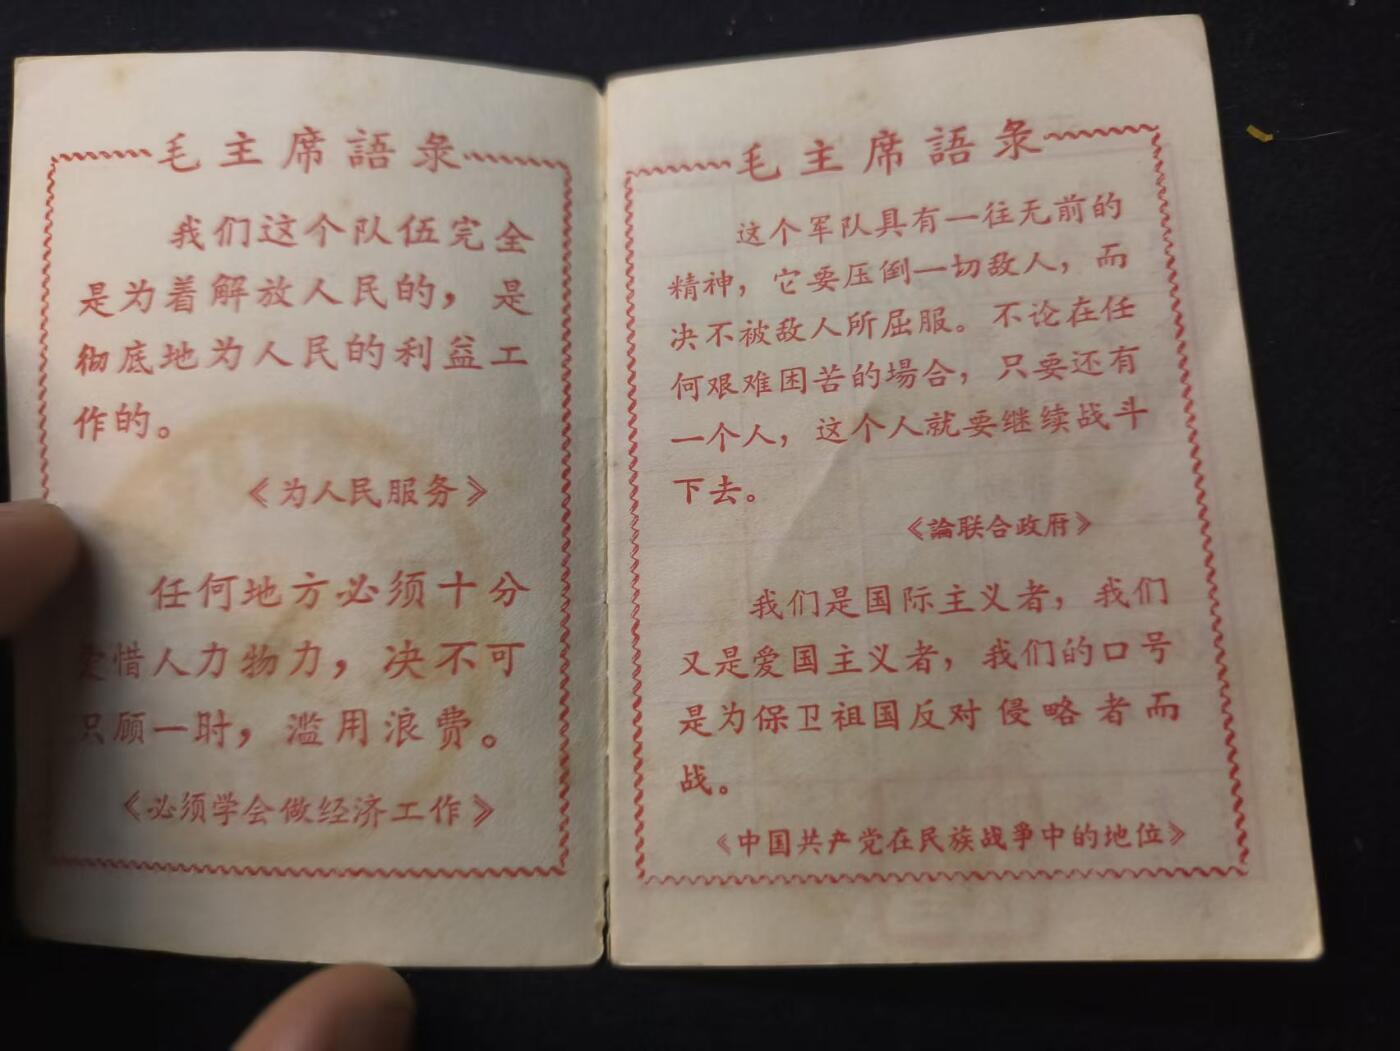 毛主席語彔
我们这个队伍完全
是为着解放人民的，是
彻底地为人民的利益工
作的。
《为人民服务》
任何地方必须十分
爱惜人力物力，决不可
只顾一时，滥用浪费。
《必须学会做经济工作》
毛主席語彔
这个军队具有一往无前的
精神，它要压倒一切敌人，而
决不被敌人所屈服。不论在任
何艰难困苦的場合，只要还有
一个人，这个人就要继续战斗
下去。
《論联合政府》
我们是国际主义者，我们
又是爱国主义者，我们的口号
是为保卫祖国反对侵略者而
战。
《中国共产党在民族战爭中的地位》